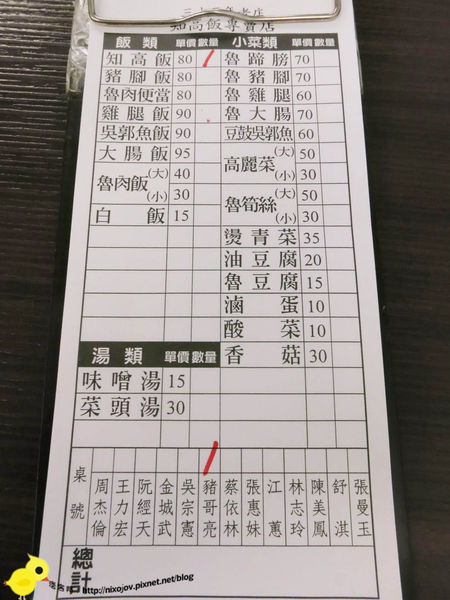 三十二年老店
知高飯專賣店
飯類 單價 數量
知高飯 80
豬腳飯 80
魯肉便當 80
雞腿飯 90
吳郭魚飯 90
大腸飯 95
魯肉飯 (大) 40
(小) 30
白飯 15
小菜類 單價 數量
魯蹄膀 70
魯豬腳 70
魯雞腿 60
魯大腸 70
豆鼓吳郭魚 60
高麗菜 (大) 50
(小) 30
魯筍絲 (大) 50
(小) 30
燙青菜 35
油豆腐 20
魯豆腐 15
滷蛋 10
酸菜 10
香菇 30
湯類 單價 數量
味噌湯 15
菜頭湯 30
桌號
周杰倫
王力宏
阮經天
金城武
吳宗憲
豬哥亮
蔡依林
張惠妹
江蕙
林志玲
陳美鳳
舒淇
張曼玉
總計
http://nixojov.pixnet.net/blog